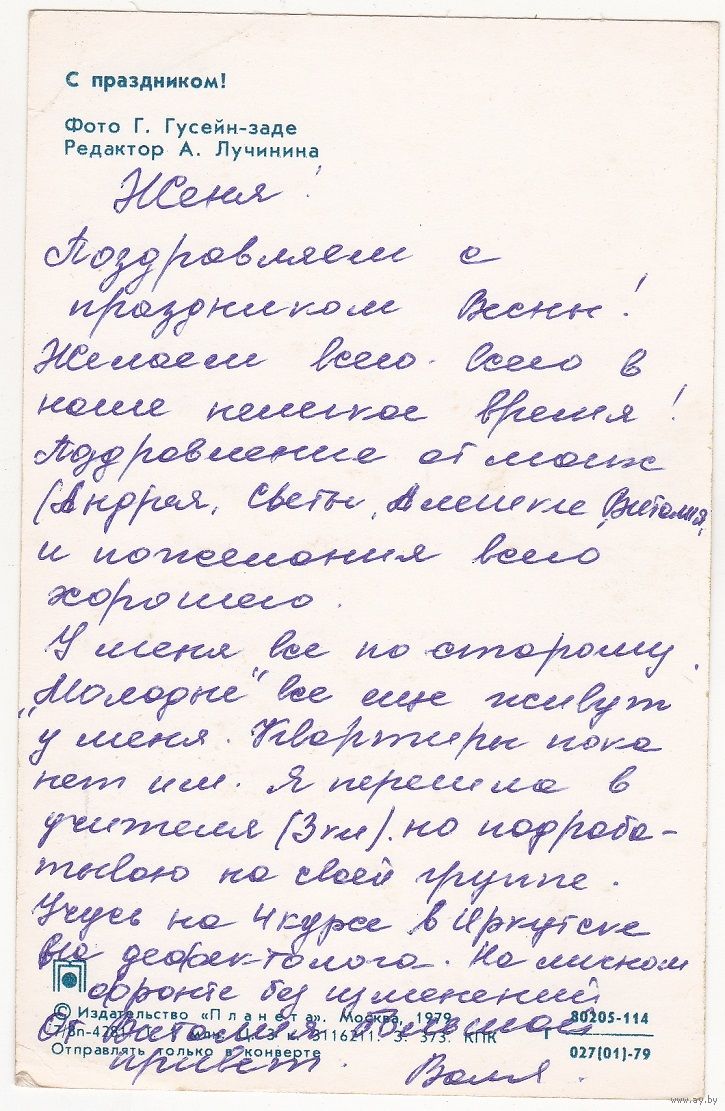 С праздником!
Фото Г. Гусейн-заде
Редактор А. Лучинина
Женя!
Поздравляем с
праздником Весны!
Желаем всего-всего в
наше нелегкое время!
Поздравление от моих
(Андрея, Светы, Алешки, Виталия,
и пожелания всего
хорошего.
У меня все по старому.
„Молодые" все еще живут
у меня. Квартиры пока
нет им. Я перешла в
учителя (3 кл). но подраба-
тываю на своей группе.
Учусь на 4 курсе в Иркутске
на дефектолога. На личном
фронте без изменений
© Издательство «Планета». Москва, 1979
80205-114
От Виталия большой
3116211. З. 373. КПК
Отправлять только в конверте
027(01)-79
привет. Валя.
www.ay.by